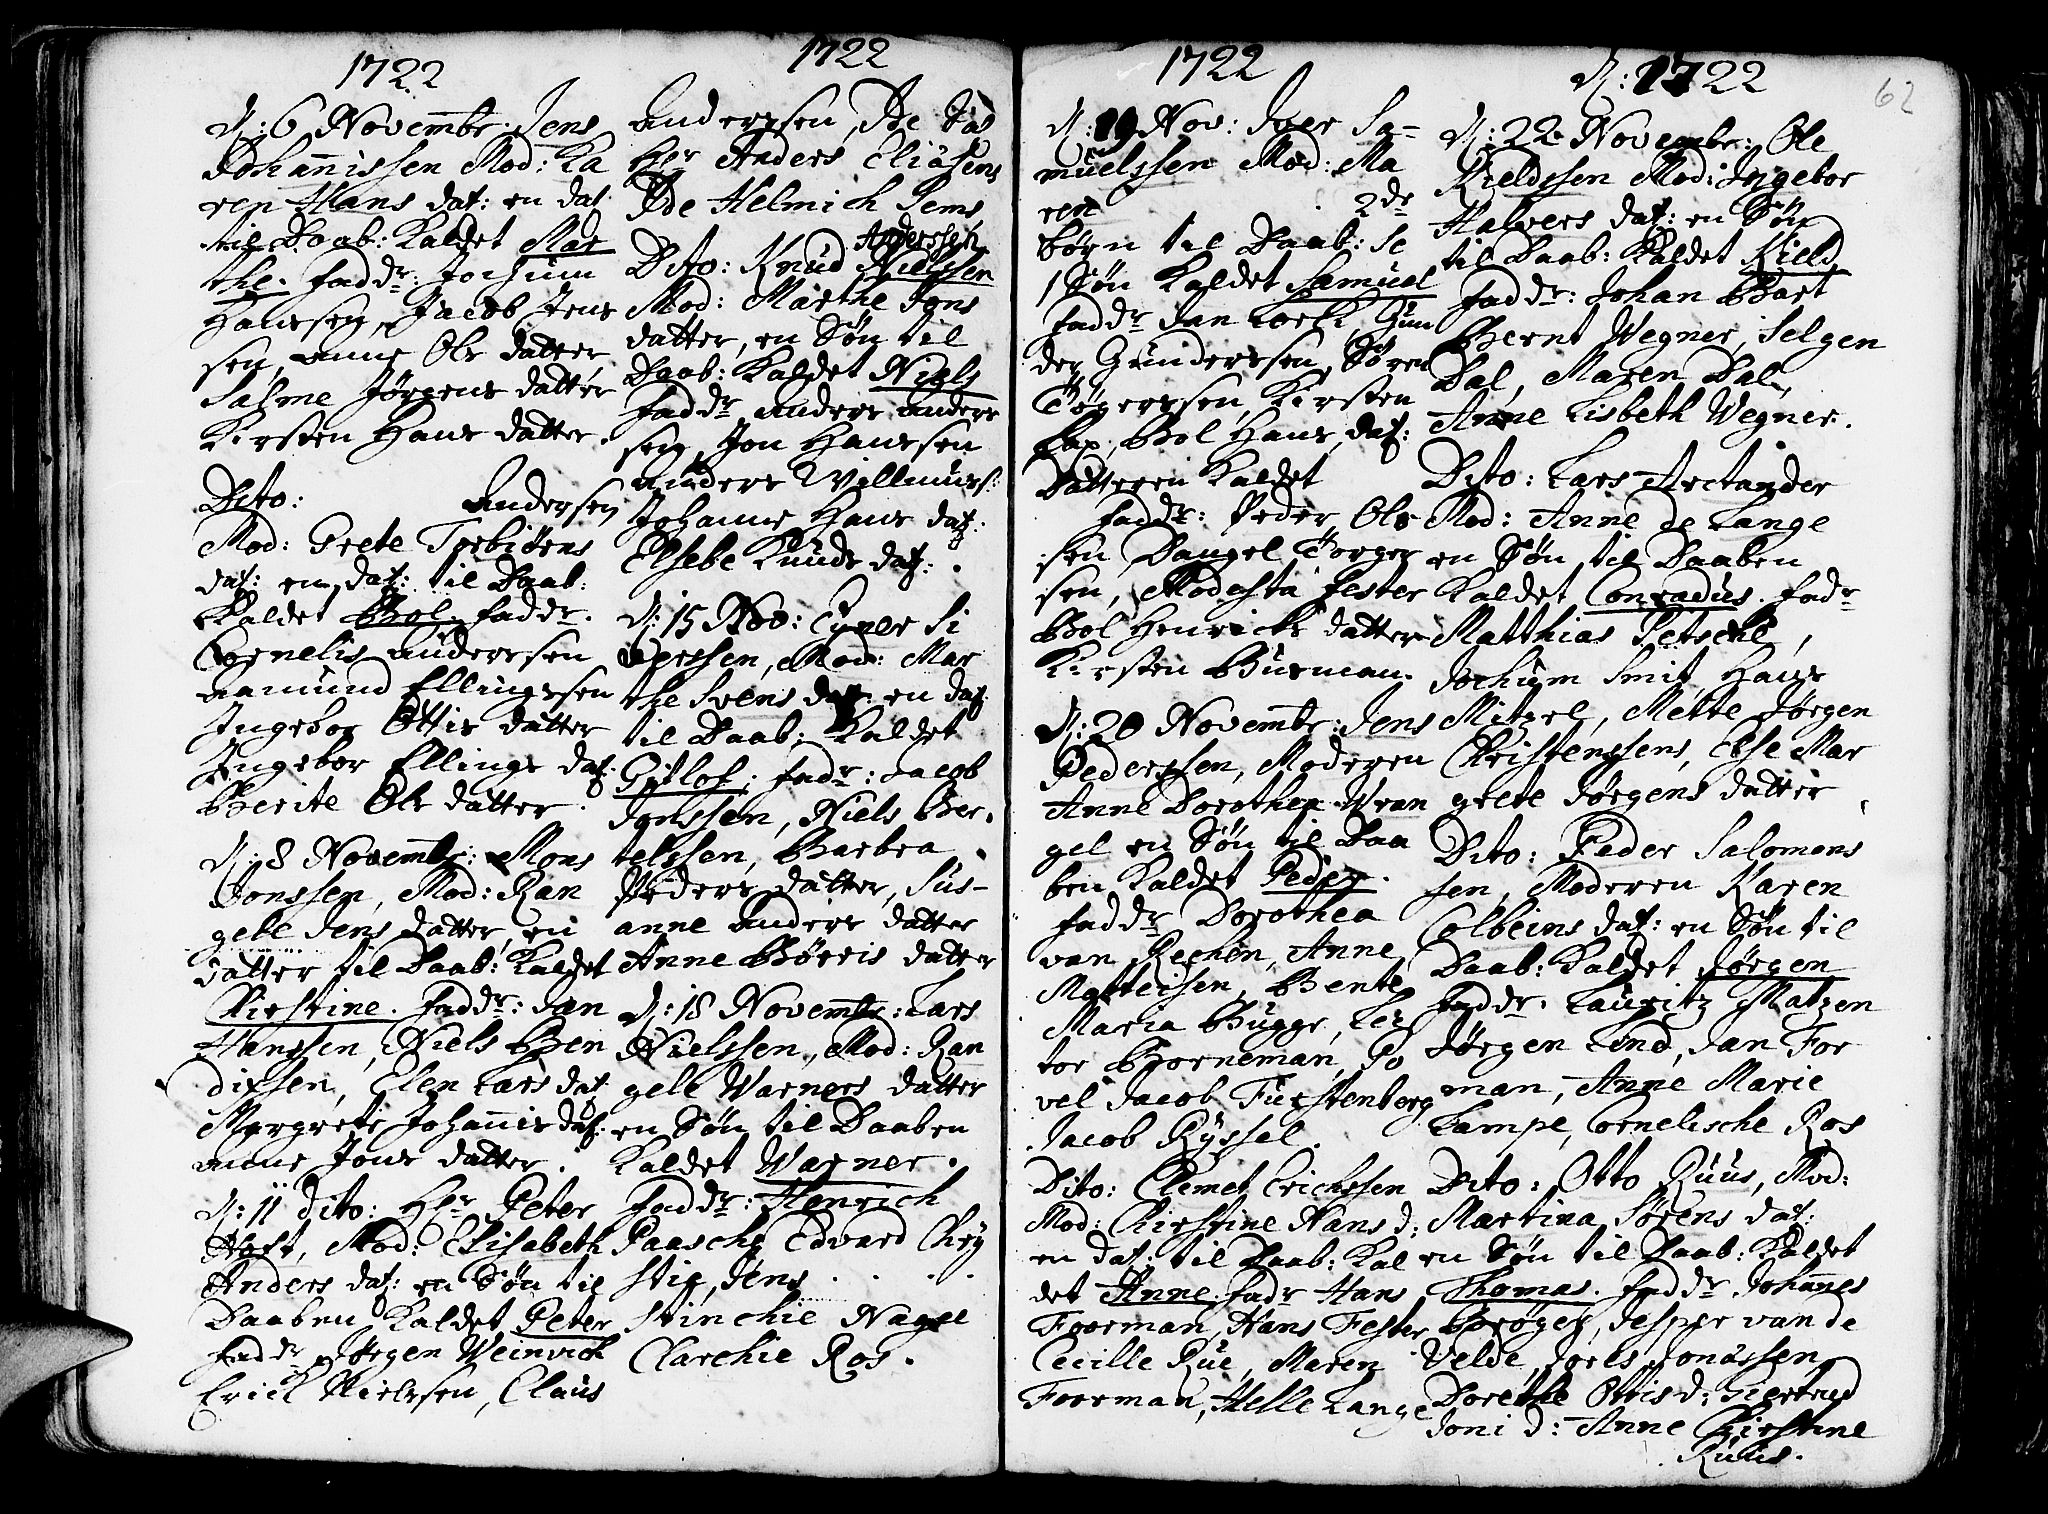 1722
D: 6 Novembr: Jens
Johannissen Mod: Ka
ren Hans dat: en dat
til Daab: Kaldet Mar
the. Faddr: Jochum
Hanssen, Jacob Jens
sen, Anne Ols datter
Salme Jørgens datter
Kirsten Hans datter.
Dito: Andersen
Mod: Grete Torbiørns
dat: en dat: til Daab:
Kaldet Bol. Faddr.
Cornelis Anderssen
Aamund Ellingssen
Ingebor Ottis datter
Ingebor Ellings dat:
Berite Ols datter.
D: 8 Novembr: Mons
Jonssen, Mod: Ran
gele Jens datter, en
datter til Daab: Kaldet
Christine. Faddr: Jan
Hanssen, Niels Ben
dixsen, Elen Lars dat
Margrete Johannis dat:
Anne Jons datter.
D: 11 dito: Hr Peter
Hoft, Mod: Elisabeth
Anders dat: en Søn til
Daaben Kaldet Peter
Faddr Jørgen Weinrich
Erick Nielssen, Claus
1722
Anderssen,
Hr Anders Eliasens
Helmich Jems
Anderssen
Dito: Knud Nielssen
Mod: Marthe Jons
datter, en Søn til
Daab: Kaldet Niels
Faddr Anders Anders
sen, Jon Hanssen
Anders Willumss:
Johanne Hans dat:
Elsebe Knuds dat:.
D: 15 Nov: Eyner Si
verssen, Mod: Mar
the Svens dat: en dat:
til Daab: Kaldet
Gitlof: Fadr: Jacob
Jonssen, Niels Ber-
telssen, Barbra
Peders datter, Sus-
anne Anders datter
Anne Børris datter
D: 18 Novembr: Lars
Nielssen, Mod: Ran
gele Warners datter
en Søn til Daaben
Kaldet Warner.
Faddr: Henrich
Paasche Edvard Chry
stie, Jens . . . .
Stinchie Nagel
Clarchie Ros.
1722
D: 19 Nov: Iver Sa-
muelssen Mod: Ma
ren 2de
Børn til Daab: Je
1 Søn Kaldet Samuel
Faddr Jan Lorck, Gun
der Gunderssen, Søren
Tøgerssen, Kirsten
Lax, Bol Hans dat:
Datteren Kaldet
Faddr: Peder Ols
sen, Daniel Torger
sen, Modesta Fester
Bol Henricks datter
Kirsten Busman.
D: 20 Novembr: Jens
Pederssen, Moderen
Anne Dorothea Wran
gel en Søn til Daa
ben Kaldet Peder.
Faddr Dorothea
van Rechen, Anne
Matteisen, Bente
Maria Bugge, Lek
tor Borneman, Po
vel Jacob Furstenborg
Jacob Ryssel.
Dito: Clemet Erichssen
Mod: Christine Hans d:
en dat: til Daab: Kal
det Anne. Fadr Hans
Foorman, Hans Fester
Cecille Rue, Maren
Foorman, Helle Lange
D: 1722
62
D: 22 Novembr: Ole
Kieldssen Mod: Ingebor
Halvers dat: en Søn
til Daab: Kaldet Kield
Faddr: Johan Bart
Bernt Wegner, Selgen
Dal, Maren Dal,
Anne Lisbeth Wegner.
Dito: Lars Arctander
Mod: Anne de Lange
en Søn til Daaben
Kaldet Conradus. Fadr
Matthias Petsche,
Jochum Smit, Hans
Mitzel, Mette Jørgen
Christenssens, Else Mar
grete Jørgens datter
Dito: Peder Salomons
sen, Moderen Karen
Colbeins dat: en Søn til
Daab: Kaldet Jørgen
Faddr. Lauritz Matzen
Jørgen Lind, Jan For
man, Anne Marie
Lampe, Cornelische Ros
Dito: Otto Ruus, Mod:
Martina Sørens dat:
en Søn til Daab: Kaldet
Thomas. Faddr Johannes
Brøger, Jesper van de
Velde, Joels Jonassen
Dorethe Ottis d: Giertrud
Joni d: Anne Christine
Ruus.